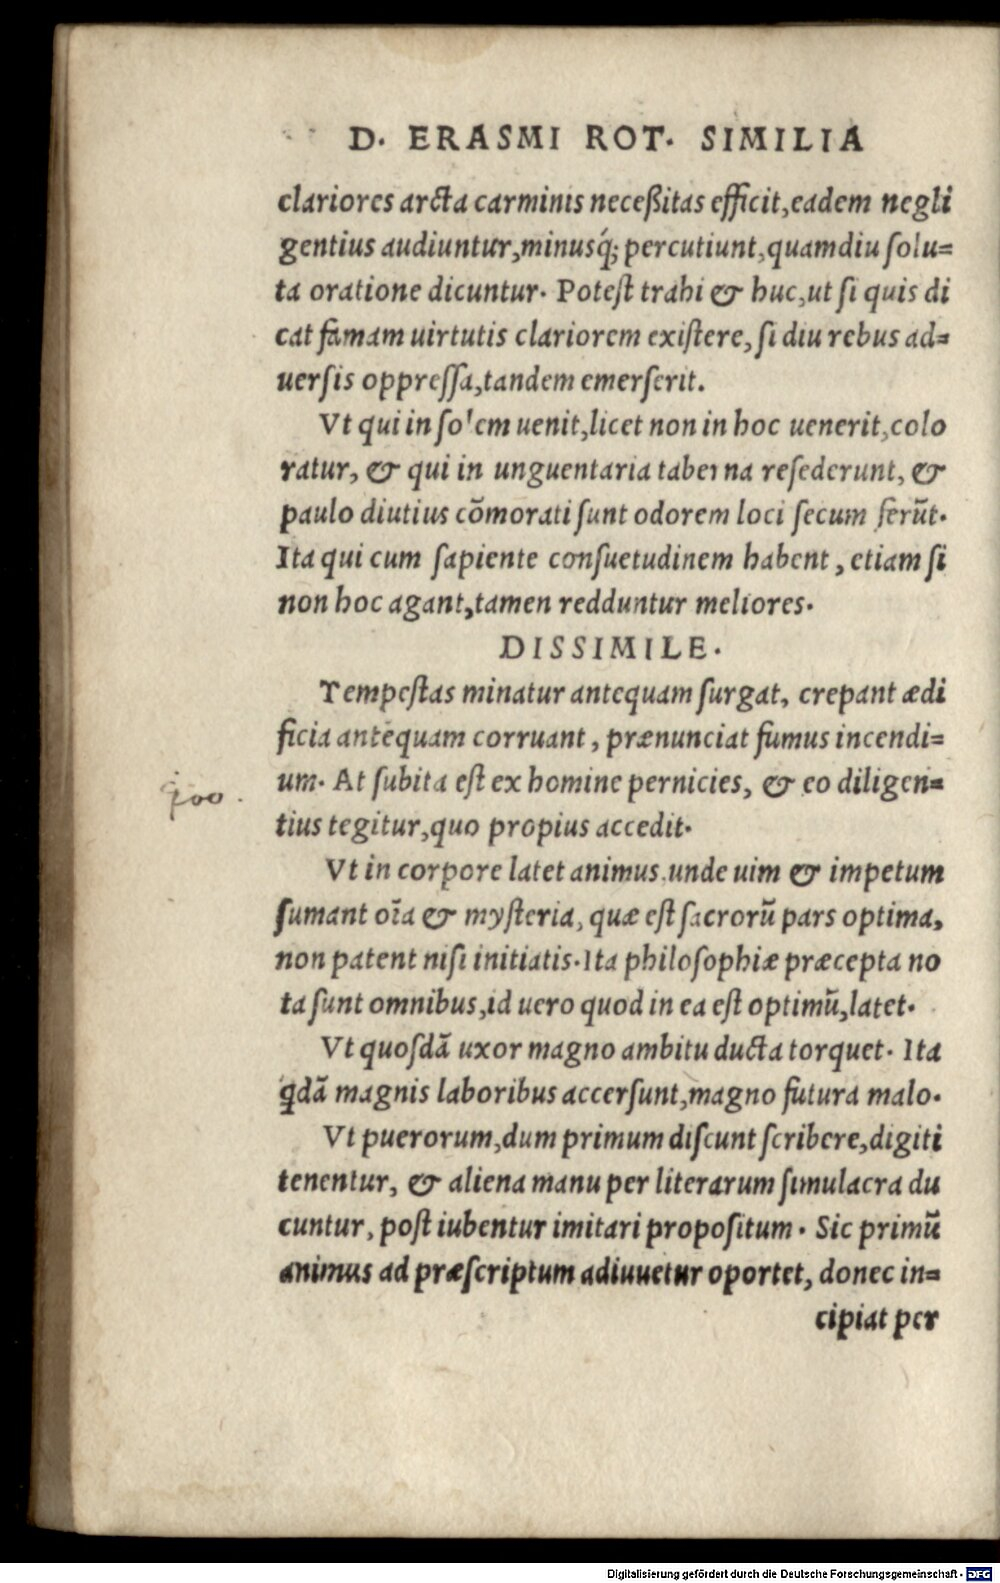 D. ERASMI ROT. SIMILIA
clariores arcta carminis neceßitas efficit,eadem negli
gentius audiuntur,minusq́; percutiunt,quamdiu ſolu=
ta oratione dicuntur. Poteſt trahi & huc,ut ſi quis di
cat famam uirtutis clariorem exiſtere, ſi diu rebus ad=
uerſis oppreſſa,tandem emerſerit.
Vt qui in ſolem uenit,licet non in hoc uenerit,colo
ratur, & qui in unguentaria taberna reſederunt, &
paulo diutius cõmorati ſunt odorem loci ſecum ferũt.
Ita qui cum ſapiente conſuetudinem habent , etiam ſi
non hoc agant,tamen redduntur meliores.
DISSIMILE.
Tempeſtas minatur antequam ſurgat, crepant ædi
ficia antequam corruant , prænunciat fumus incendi=
um. At ſubita eſt ex homine pernicies, & eo diligen=
tius tegitur,quo propius accedit.
Vt in corpore latet animus,unde uim & impetum
ſumant oĩa & myſteria, quæ eſt ſacrorũ pars optima,
non patent niſi initiatis.Ita philoſophiæ præcepta no
ta ſunt omnibus,id uero quod in ea eſt optimũ,latet.
Vt quoſdã uxor magno ambitu ducta torquet. Ita
qdã magnis laboribus accerſunt,magno futura malo.
Vt puerorum,dum primum diſcunt ſcribere,digiti
tenentur, & aliena manu per literarum ſimulacra du
cuntur, poſt iubentur imitari propoſitum. Sic primũ
animus ad præſcriptum adiuuetur oportet, donec in=
cipiat per
Digitalisierung gefördert durch die Deutsche Forschungsgemeinschaft - DFG